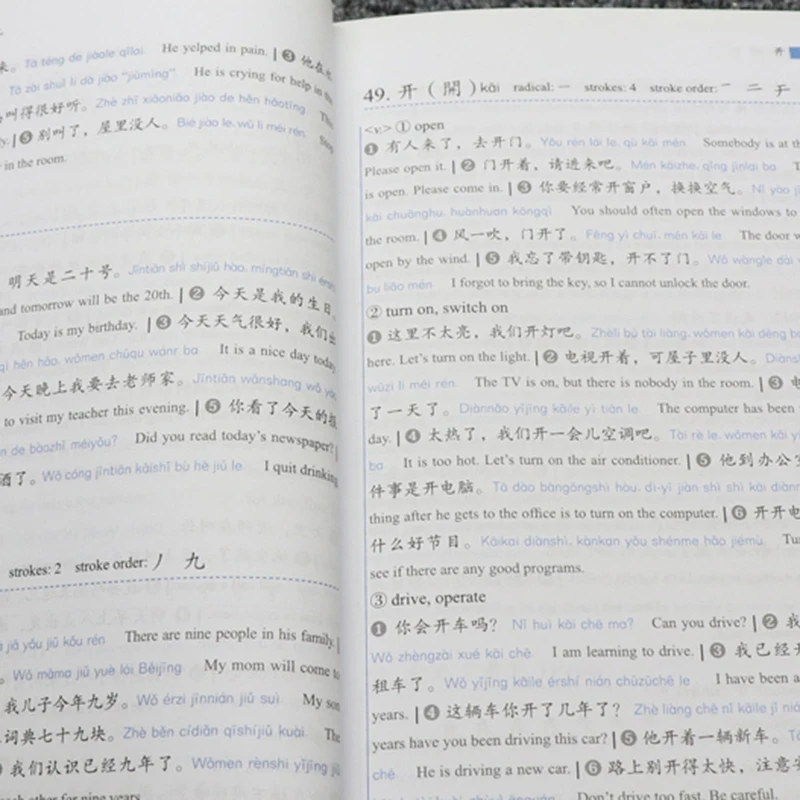 来。Tā téng de jiàole qǐlai He yelped in pain. | ❸ 他在水
Tā zài shuǐ li dà jiào “jiùmìng”. He is crying for help in the
叫得很好听。Zhè zhī xiǎoniǎo jiào de hěn hǎotīng The
❺ 别叫了，屋里没人。Bié jiào le, wū li méi rén Stop
in the room.
明天是二十号。Jīntiān shì shíjiǔ hào, míngtiān shì èrshí
and tomorrow will be the 20th. | ❷ 今天是我的生日。
Today is my birthday. | ❸ 今天天气很好，我们出
qì hěn hǎo, wǒmen chūqu wánr ba It is a nice day today
今天晚上我要去老师家。Jīntiān wǎnshang wǒ yào
to visit my teacher this evening. | ❺ 你看了今天的报
de bàozhǐ méiyǒu? Did you read today’s newspaper? |
酒了。Wǒ cóng jīntiān kāishǐ bù hē jiǔ le I quit drinking
strokes: 2 stroke order: 丿 九
jiā yǒu jiǔ kǒu rén There are nine people in his family. |
Wǒ māma jiǔ yuè lái Běijīng My mom will come to
我儿子今年九岁。Wǒ érzi jīnnián jiǔ suì My son
词典七十九块。Zhè běn cídiǎn qīshíjiǔ kuài The
我们认识已经九年了。Wǒmen rènshi yǐjīng jiǔ
each other for nine years
开
49. 开（開）kāi radical: 一 strokes: 4 stroke order: 一 二 于
<v.> ① open
❶ 有人来了，去开门。Yǒu rén lái le, qù kāi mén Somebody is at th
Please open it. | ❷ 门开着，请进来吧。Mén kāizhe, qǐng jìnlai ba T
is open. Please come in. | ❸ 你要经常开窗户，换换空气。Nǐ yào jī
kāi chuānghu, huànhuan kōngqì You should often open the windows to
the room. | ❹ 风一吹，门开了。Fēng yì chuī, mén kāi le The door w
open by the wind. | ❺ 我忘了带钥匙，开不了门。Wǒ wàngle dài y
bu liǎo mén I forgot to bring the key, so I cannot unlock the door.
② turn on, switch on
❶ 这里不太亮，我们开灯吧。Zhèli bú tài liàng, wǒmen kāi dēng ba
here. Let’s turn on the light. | ❷ 电视开着，可屋子里没人。Diànsh
wūzi li méi rén The TV is on, but there is nobody in the room. | ❸ 电
了一天了。Diànnǎo yǐjīng kāile yì tiān le The computer has been
day. | ❹ 太热了，我们开一会儿空调吧。Tài rè le, wǒmen kāi yí
ba It is too hot. Let’s turn on the air conditioner. | ❺ 他到办公室
件事是开电脑。Tā dào bàngōngshì hòu, dì-yī jiàn shì shì kāi diànn
thing after he gets to the office is to turn on the computer. | ❻ 开开电
什么好节目。Kāikai diànshì, kànkan yǒu shénme hǎo jiémù Tu
see if there are any good programs.
③ drive, operate
❶ 你会开车吗？ Nǐ huì kāi chē ma? Can you drive? | ❷ 我
Wǒ zhèngzài xué kāi chē I am learning to drive. | ❸ 我已经开
租车了。Wǒ yǐjīng kāile èrshí nián chūzūchē le I have been a
years. | ❹ 这辆车你开了几年了？ Zhè liàng chē nǐ kāile jǐ niá
years have you been driving this car? | ❺ 他开着一辆新车。Tā
chē He is driving a new car. | ❻ 路上别开得太快，注意安
Don’t drive too fast. Be careful.